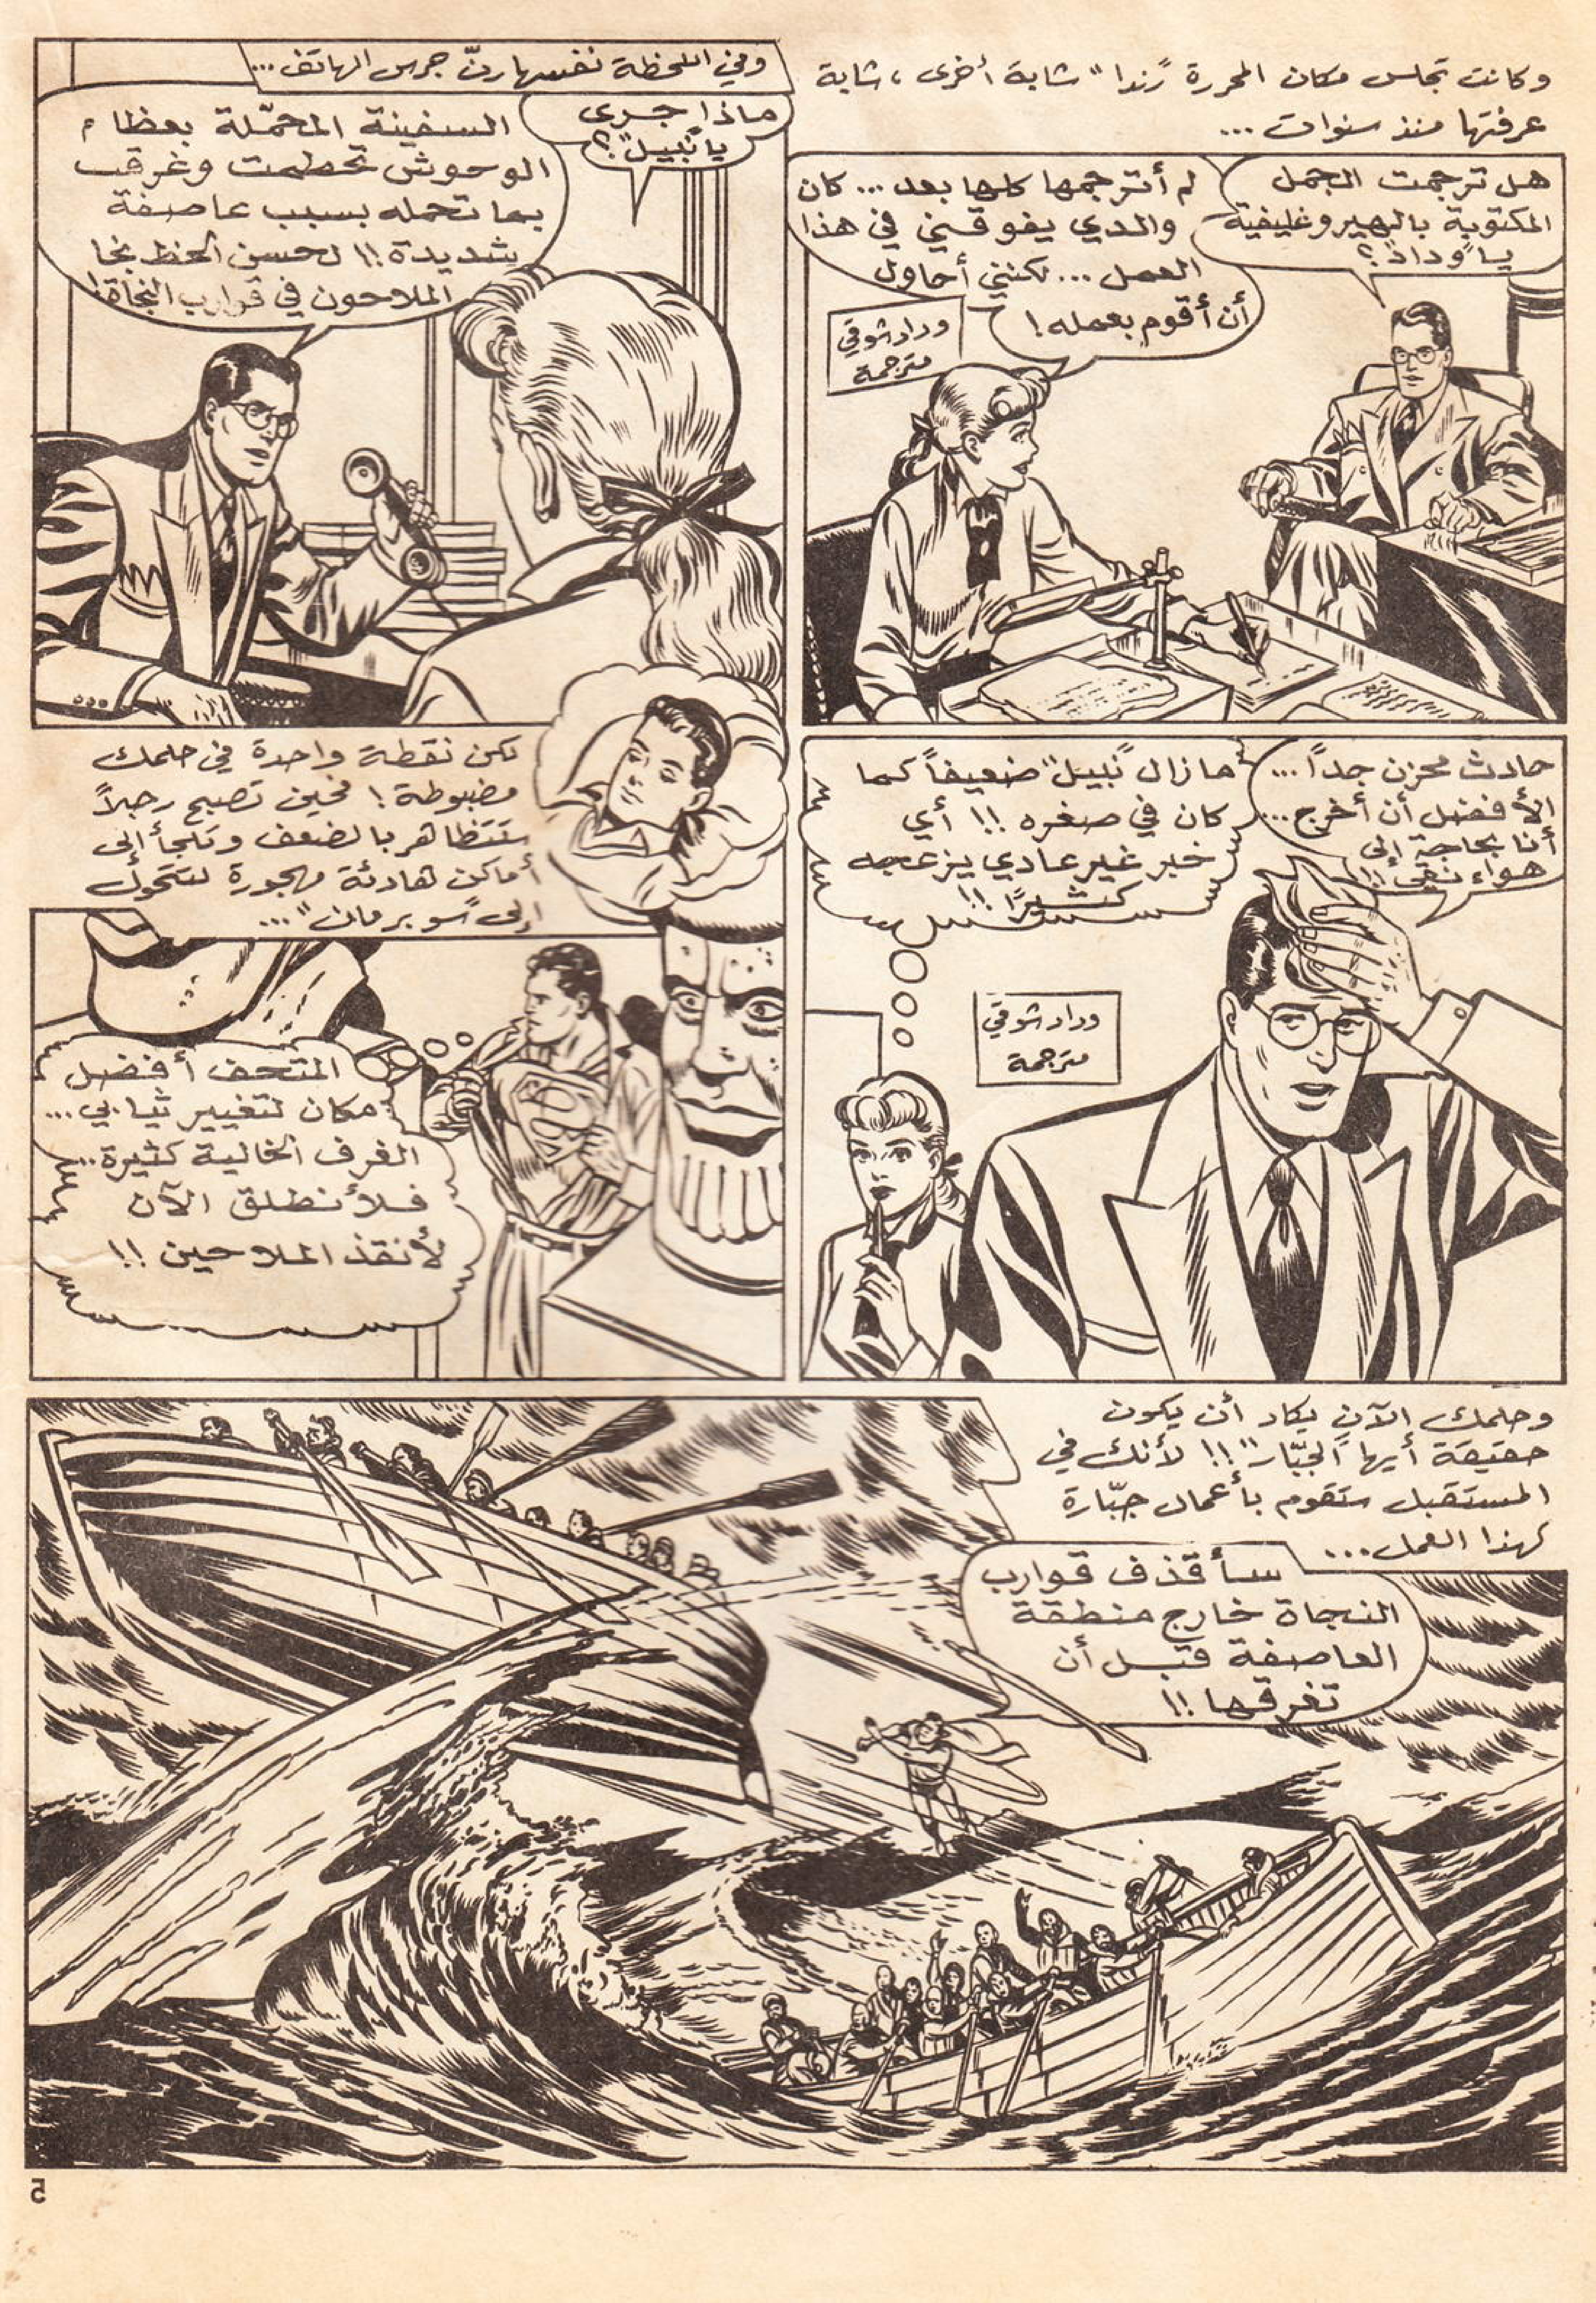 وكانت تجلس مكان المحررة "رندا" شابة أخرى، شابة
عرفتها منذ سنوات ...
هل ترجمت الجمل
المكتوبة بالهيروغليفية
يا "وداد"؟
لم أترجمها كلها بعد ... كان
والدي يفوقني في هذا
العمل ... لكنني أحاول
أن أقوم بعمله!
وداد شوقي
مترجمة
وفي اللحظة نفسها رنّ جرس الهاتف ...
ماذا جرى
يا "نبيل"؟
السفينة المحمّلة بعظام
الوحوش تحطمت وغرقت
بما تحمله بسبب عاصفة
شديدة!! لحسن الحظ نجا
الملاحون في قوارب النجاة!
حادث محزن جداً ...
الأفضل أن أخرج ...
أنا بحاجة إلى
هواء نقي!!
ما زال "نبيل" ضعيفاً كما
كان في صغره!! أي
خبر غير عادي يزعجه
كثيرًا!!
وداد شوقي
مترجمة
لكن نقطة واحدة في حلمك
مضبوطة! فحين تصبح رجلاً
ستتظاهر بالضعف وتلجأ إلى
أماكن هادئة مهجورة لتتحول
إلى "سوبرمان" ...
المتحف أفضل
مكان لتغيير ثيابي ...
الغرف الخالية كثيرة ...
فلأنطلق الآن
لأنقذ الملاحين!!
وحلمك الآن يكاد أن يكون
حقيقة أيها "الجبّار"!! لأنك في
المستقبل ستقوم بأعمال جبّارة
كهذا العمل ...
سأقذف قوارب
النجاة خارج منطقة
العاصفة قبل أن
تغرقها!!
5